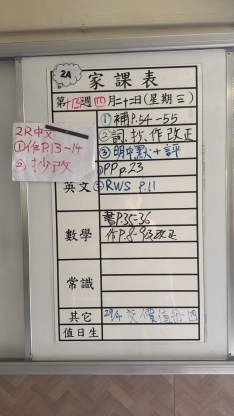 2A
家課表
第十三週四月二十二日(星期三)
①補P.54-55
②詞、抄、作改正
③明中默+評
2R中文
①作P.13~14
②抄改
①PP p.23
英文 ②RWS p.11
書P.35-36
數學 作P.8-9及改正
常識
其它 29/4 交
值日生